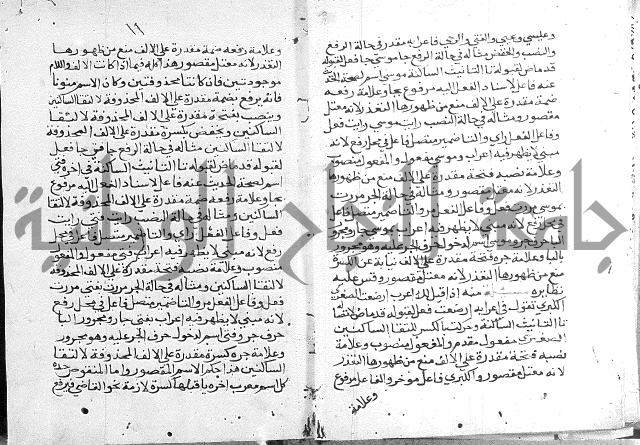 وعيسى وحبلى والفتى والرحى فاعرابه مقدر في حالة الرفع
والنصب والخفض مثاله في حالة الرفع جا موسى جا فعل
قد ماض لقبوله تا التانيث الساكنة موسى اسم لصحة الحديث
عنه فاعل لاسناد الفعل اليه مرفوع بجا وعلامة رفعه
ضمة مقدرة على الالف منع من ظهورها التعذر لانه معتل
مقصور ومثاله في حالة النصب رايت موسى رايت فعل
وفاعل الفعل راى والتا ضمير متصل فاعل في محل رفع لانه
مبني لا يظهر فيه اعراب وموسى مفعول والمفعول منصوب
وعلامة نصبه فتحة مقدرة على الالف منع من ظهورها
التعذر لانه معتل مقصور ومثاله في حالة الجر مررت
بموسى مررت فعل وفاعل الفعل مر والتا ضمير متصل فاعل في
رفع لانه مبني لا يظهر فيه اعراب بموسى جار ومجرور
البا حرف جر وموسى اسم لدخول حرف الجر عليه وهو مجرور
بالبا وعلامة جره فتحة مقدرة على الالف نيابة عن الكسرة
منع من ظهورها التعذر لانه معتل مقصور وقس عليه
نظايره منه اذا قيل لك اعرب ارضعت الصغرى
الكبرى تقول في اعرابه ارضعت فعل لقبوله قد ماض لاتصاله
تا التانيث الساكنة وحركت بالكسر لالتقا الساكنين
الصغرى مفعول مقدم والمفعول منصوب وعلامة
نصبه فتحة مقدرة على الالف منع من ظهورها التعذر
لانه معتل مقصور والكبرى فاعل موخر والفاعل مرفوع
وعلامة
١٦
وعلامة رفعه ضمة مقدرة على الالف منع من ظهورها
التعذر لانه معتل مقصور هذا كله فيما اذا كانت الالف واللام
موجودتين فان كانتا محذوفتين وكان الاسم منونا
فانه يرفع بضمة مقدرة على الالف المحذوفة لالتقا الساكنين
وينصب بفتحة مقدرة على الالف المحذوفة لالتقا
الساكنين ويخفض بكسرة مقدرة على الالف المحذوفة
لالتقا الساكنين مثاله في حالة الرفع جا فتى جا فعل
لقبوله قد ماض لقبوله تا التانيث الساكنة في اخره فتى
اسم لصحة الحديث عنه فاعل لاسناد الفعل اليه مرفوع
بجا وعلامة رفعه ضمة مقدرة على الالف المحذوفة لالتقا
الساكنين ومثاله في حالة النصب رايت فتى رايت
فعل وفاعل الفعل راى والتا ضمير متصل فاعل في محل
رفع لانه مبني لا يظهر فيه اعراب فتى مفعول والمفعول
منصوب وعلامة نصبه فتحة مقدرة على الالف المحذوفة
لالتقا الساكنين ومثاله في حالة الجر مررت بفتى مررت
فعل وفاعل الفعل مر والتا ضمير متصل فاعل في محل رفع
لانه مبني لا يظهر فيه اعراب بفتى جار ومجرور البا
حرف جر وفتى اسم لدخول حرف الجر عليه وهو مجرور
وعلامة جره كسرة مقدرة على الالف المحذوفة لالتقا
الساكنين هذا حكم الاسم المقصور واما المنقوص حده
كل اسم معرب اخره يا قبلها كسرة لازمة نحو القاضي فيرفع
جامعة النجاح الوطنية